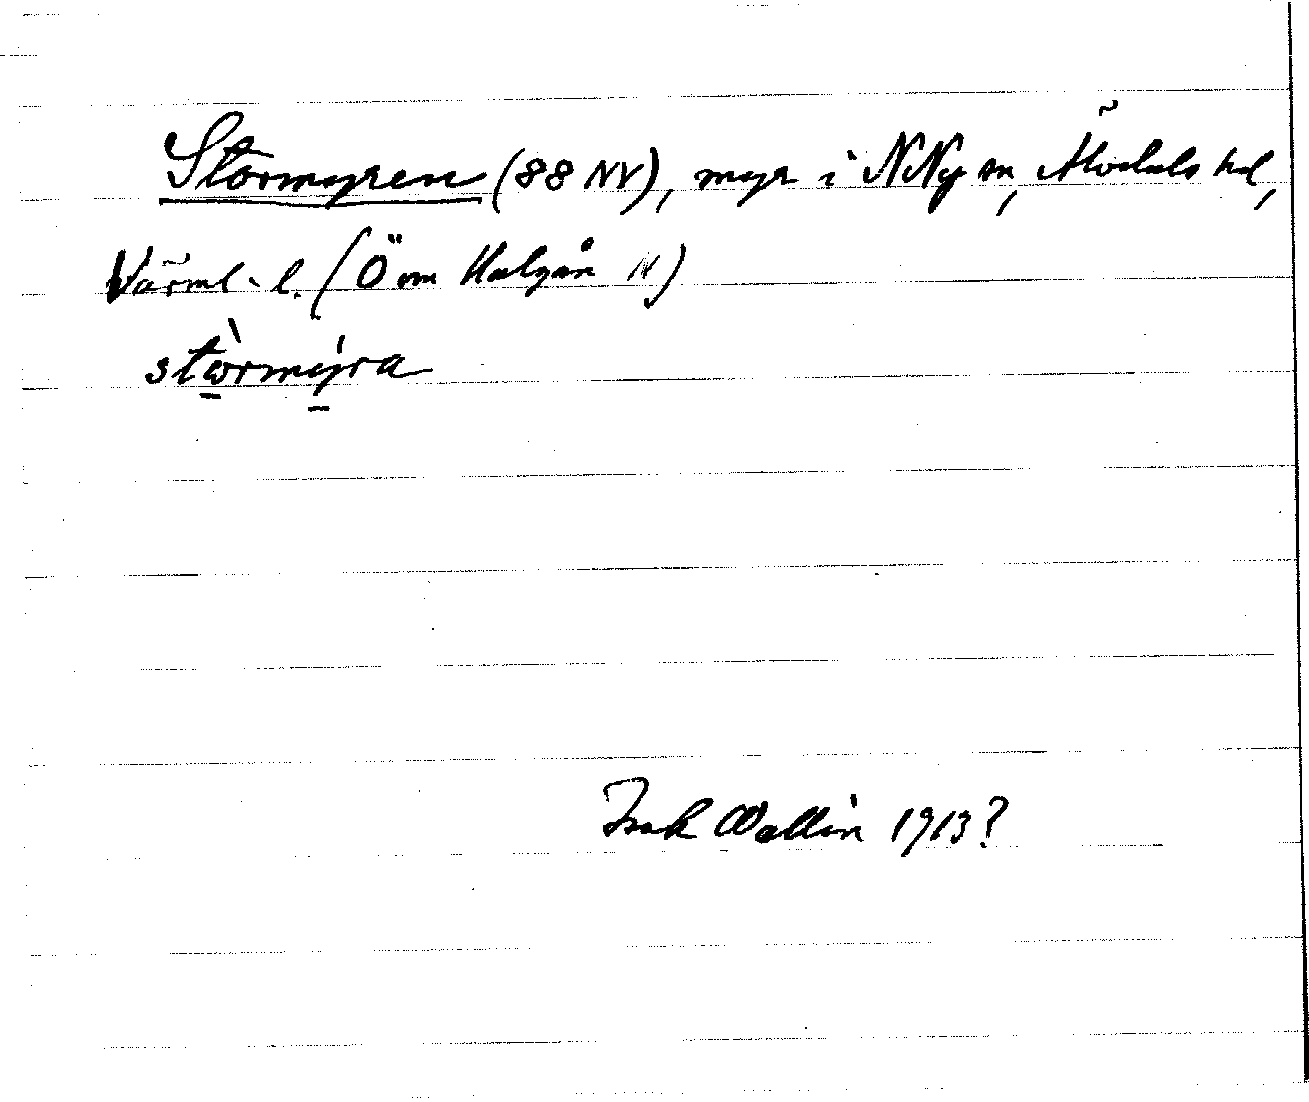 Stormyren (88 NV), myr i N Ny sn, Älvdals hd,
Värml. l. (Ö om Halgån N)
stòrmýra
Isak Wallin 1913?